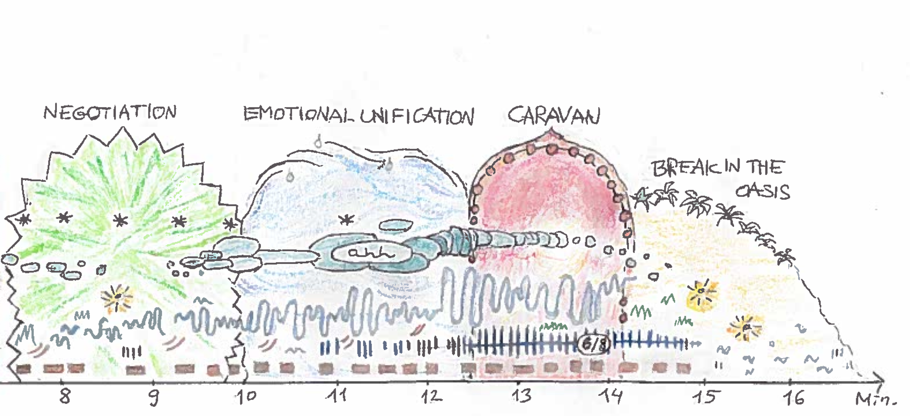 NEGOTIATION
EMOTIONAL UNIFICATION
CARAVAN
BREAK IN THE
OASIS
ahh
6/8
8 9 10 11 12 13 14 15 16 Min.